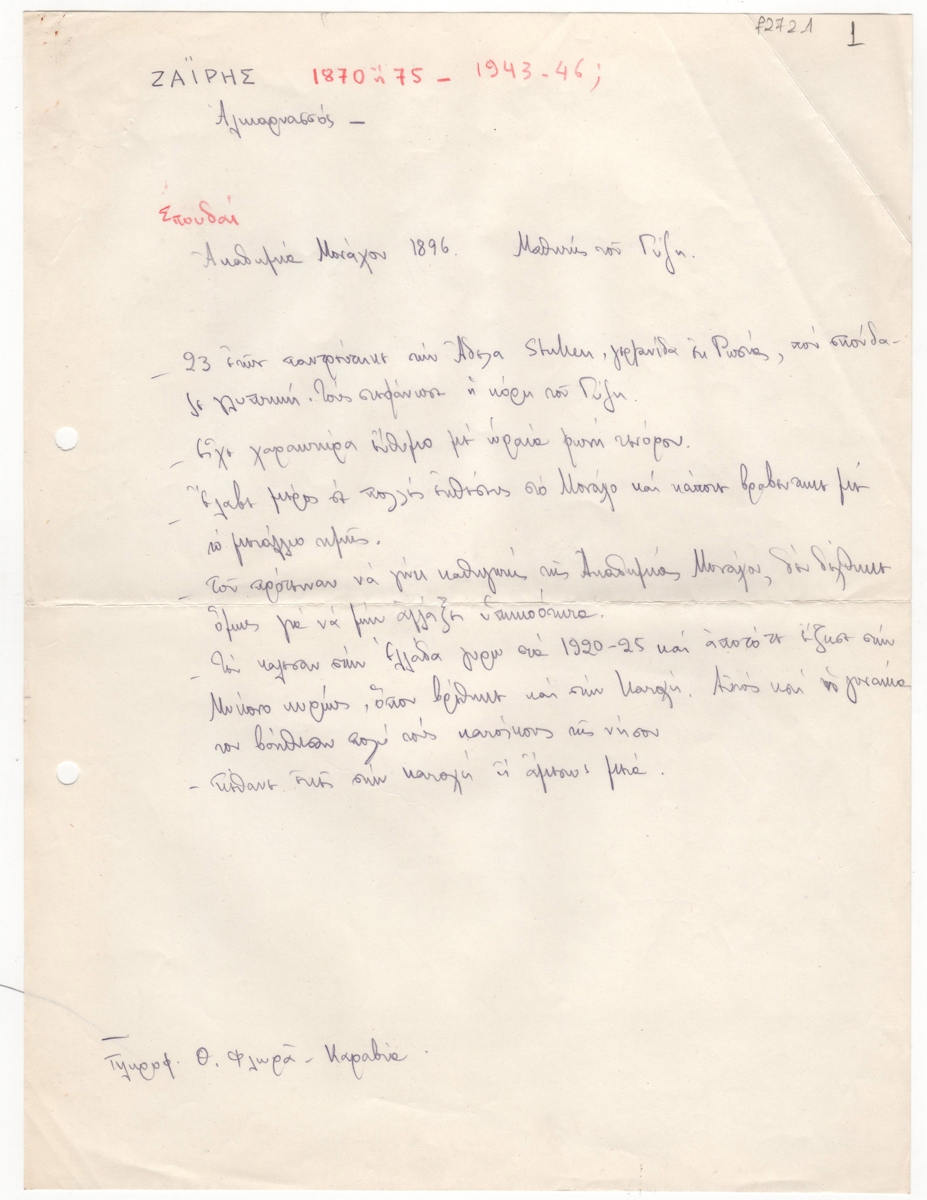 f2721 1
ΖΑΪΡΗΣ 1870 ἤ 75 – 1943-46;
Ἁλικαρνασσός –
Σπουδαί
Ἀκαδημία Μονάχου 1896. Μαθητής τοῦ Γύζη.
– 23 ἐτῶν παντρεύτηκε τήν Ἀδελα, γερμανίδα ἐκ Ρωσίας, πού σπούδα-
ζε γλυπτική. Τούς στεφάνωσε ἡ κόρη τοῦ Γύζη.
– Εἶχε χαρακτήρα εὔθυμο μέ ὡραία φωνή τενόρου.
– Ἔλαβε μέρος σέ πολλές ἐκθέσεις στό Μονάχο καί κάποτε βραβεύτηκε μέ
τό μετάλλιο τιμῆς.
– Τοῦ πρότειναν νά γίνει καθηγητής τῆς Ἀκαδημίας Μονάχου, δέν δέχθηκε
ὅμως γιά νά μήν ἀλλάξη ὑπηκοότητα.
– Τόν κάλεσαν στήν Ἑλλάδα γύρω στά 1920-25 καί ἀπό τότε ἔζησε στήν
Μύκονο κυρίως, ὅπου βρέθηκε καί στήν Κατοχή. Αὐτός καί ἡ γυναίκα
του βόηθησαν πολύ τούς κατοίκους τῆς νήσου
– πέθανε ἐκεῖ στήν κατοχή ἤ ἀμέσως μετά.
Πληροφ. Θ. Φλωρᾶ – Καραβία.